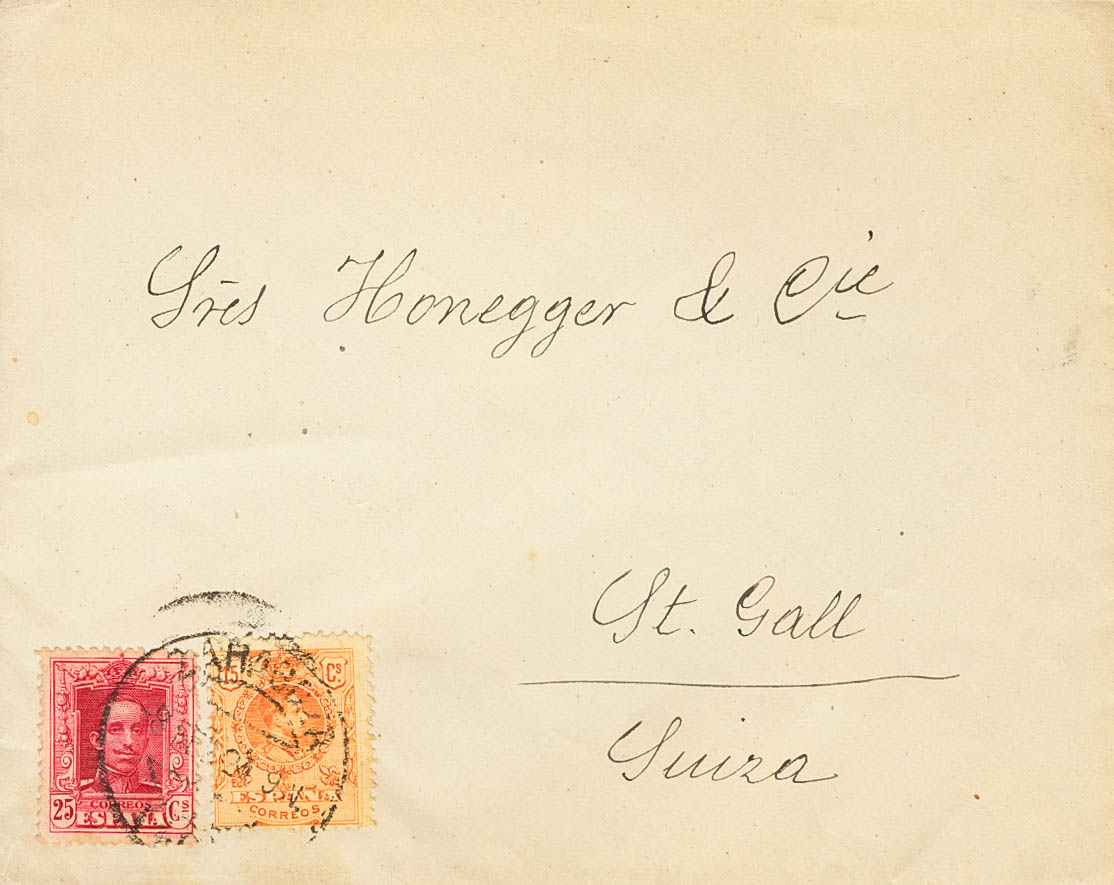 Srēs Honegger & Cie
St. Gall
Suiza
ZARAGOZA
25 CORREOS Cs
ESPAÑA
15 Cs
ESPAÑA
CORREOS